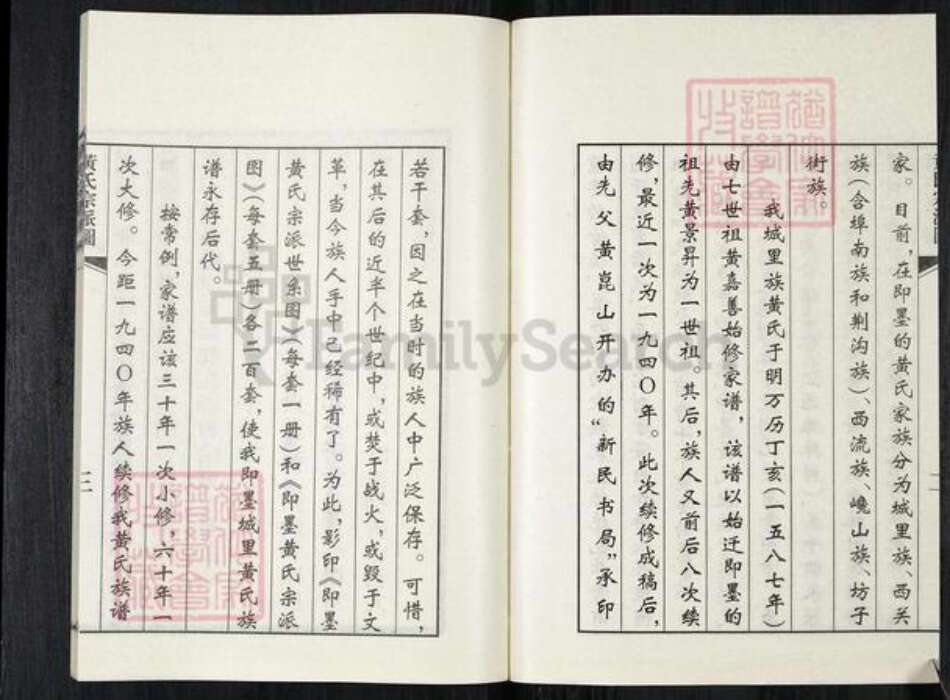 家。目前，在即墨的黄氏家族分为城里族、西关
族（含埠南族和荆沟族）、西流族、巉山族、坊子
街族。
我城里族黄氏于明万历丁亥（一五八七年）
由七世祖黄嘉善始修家谱，该谱以始迁即墨的
祖先黄景昇为一世祖。其后，族人又前后八次续
修，最近一次为一九四〇年。此次续修成稿后，
由先父黄崑山开办的“新民书局”承印
若干套，因之在当时的族人中广泛保存。可惜，
在其后的近半个世纪中，或焚于战火，或毁于文
革，当今族人手中已经稀有了。为此，影印《即墨
黄氏宗派世系图》（每套一册）和《即墨黄氏宗派
图》（每套五册）各二百套，使我即墨城里黄氏族
谱永存后代。
按常例，家谱应该三十年一次小修，六十年一
次大修。今距一九四〇年族人续修我黄氏族谱
黄氏宗派图
二
FamilySearch